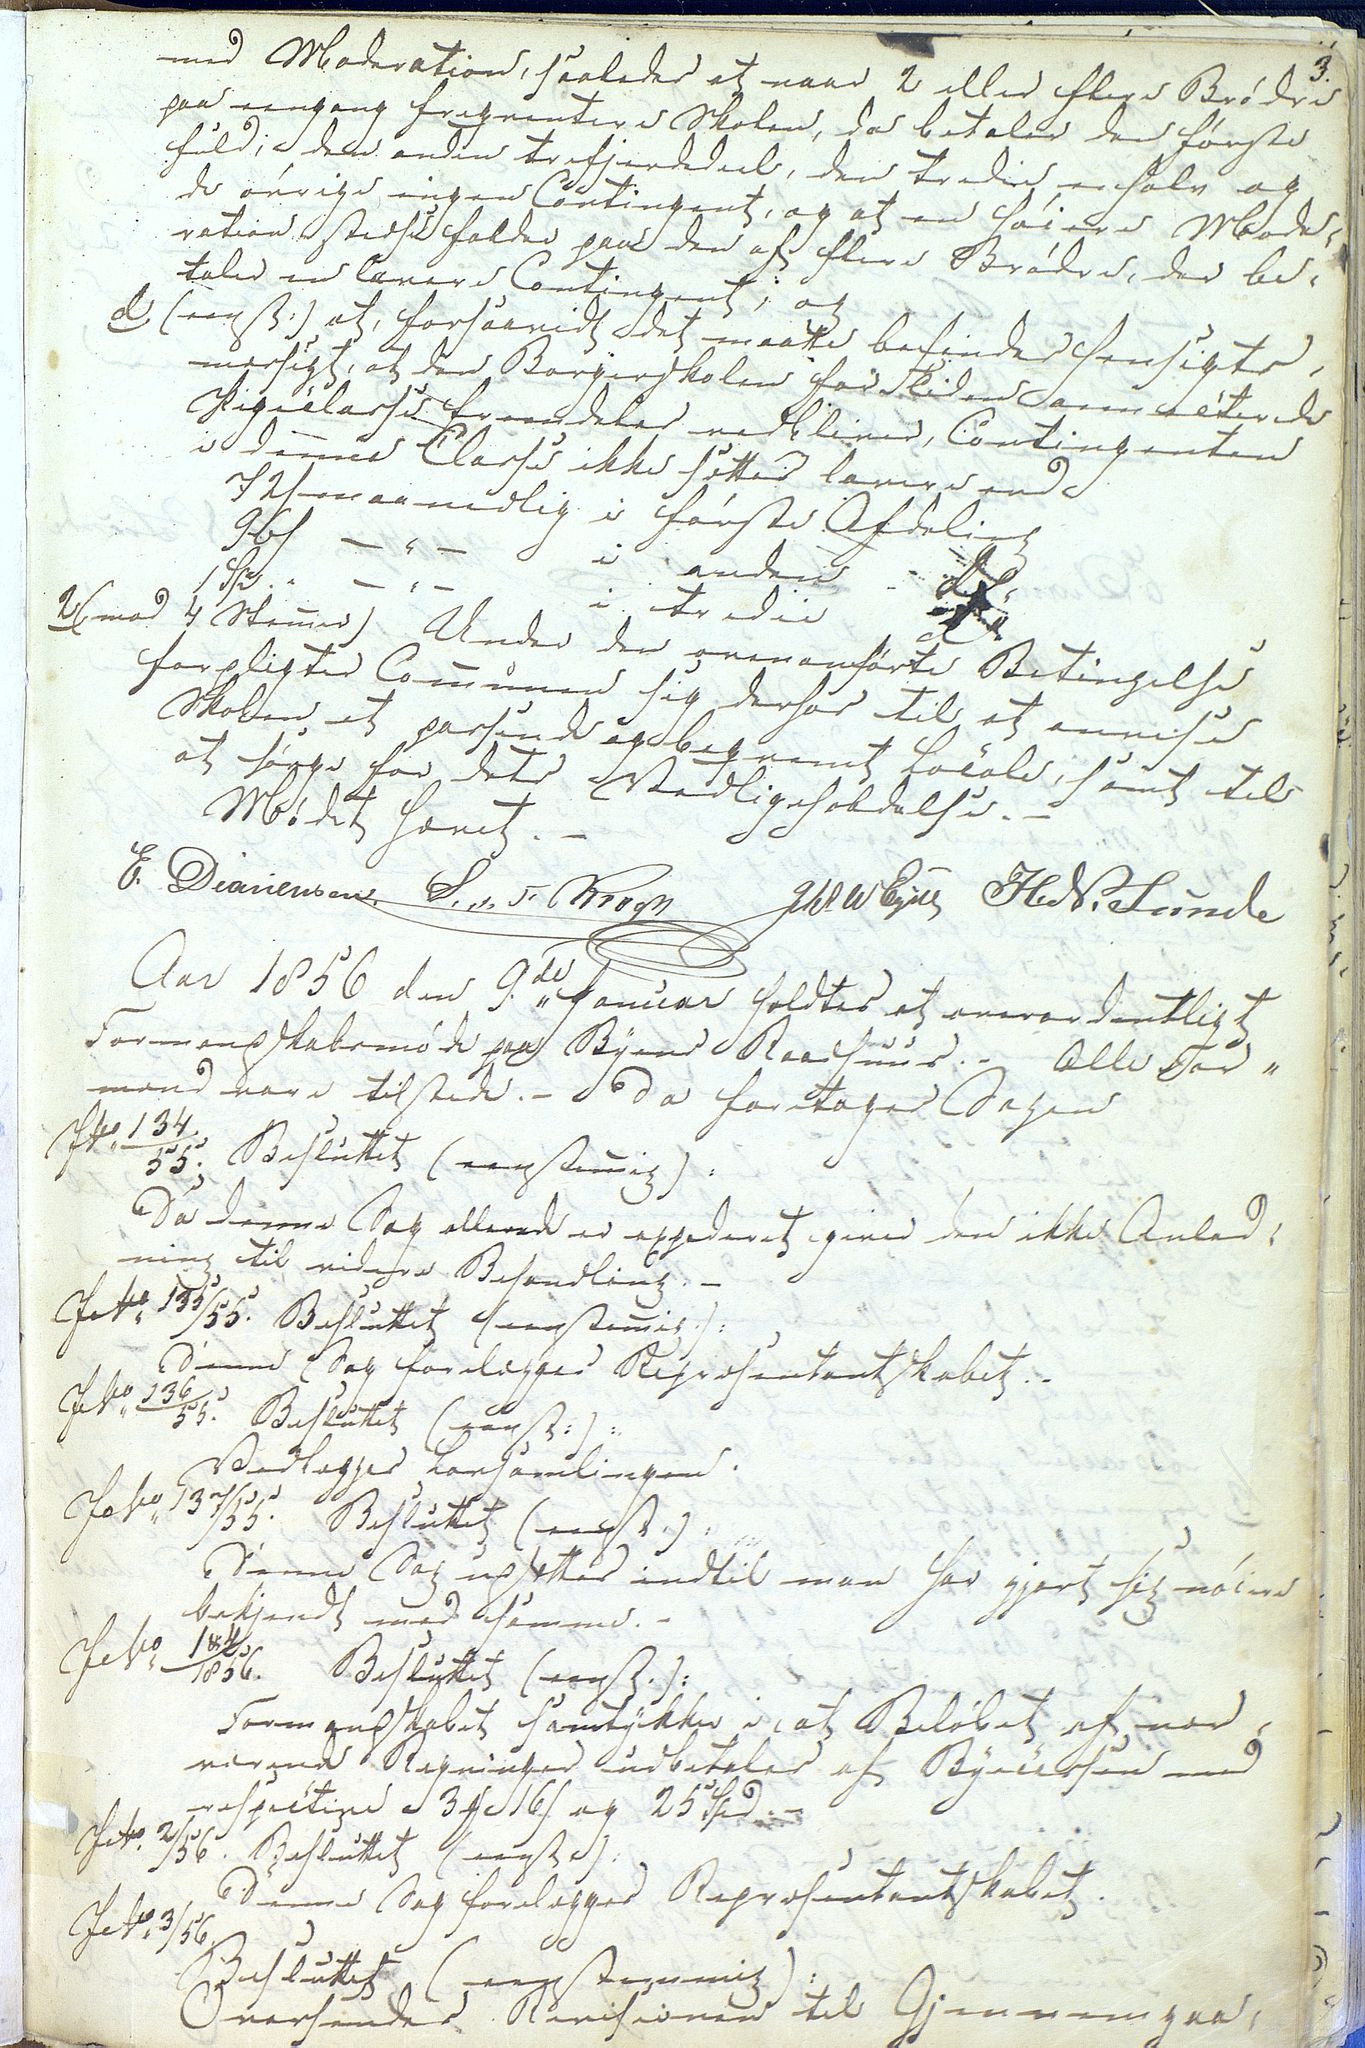 3.
med Moderation, saaledes at naar 2 eller flere Brødre
paa eengang freqventere Skolen, da betaler den første
fuld, den anden trefjerdedeel, den tredie en halv og
de øvrige ingen Contingent, og at en høiere Mode-
ration stedse falder paa den af flere Brødre, der be-
taler en lavere Contingent; og
d, (eenst:) at, forsaavidt det maatte befindes hensigts-
mæssigt, at den Borgerskolen for Tiden annecterede
Pigeclasse fremdeles vedbliver, Contingenten
i denne Classe ikke sættes lavere end
72 s maanedlig i første Afdeling
96 s — " — i anden Do.
1 Spd. — " — i tredie Do.
2, (med 4 Stemmer) Under den ovenanførte Betingelse
forpligter Communen sig derhos til at anvise
Skolen et passende og beqvemt Locale, samt til
at sørge for dets Vedligeholdelse. —
Mødet hævet. —
E. Dianiensen. S. v. Krogh H. N. Sunde
Aar 1856 den 9.de Januar holdtes et overordentligt
Formandskabsmøde paa Byens Raadhuus. — Alle For-
mænd vare tilstede. — Da foretoges Sagen
J No. 134/55. Besluttet (eenstemmig):
Da denne Sag allerede er expederet giver den ikke Anled-
ning til videre Behandling. —
J No. 135/55. Besluttet (eenstemmig):
Denne Sag forelægges Repræsentantskabet. —
J No. 136/55. Besluttet (eenst:):
Vedlægges Forsamlingen.
J No. 137/55. Besluttet (eenst.):
Denne Sag udsættes indtil man har gjort sig nøiere
bekjendt med samme. —
J No. 1 & 4/1856. Besluttet (eenst.):
Formandskabet samtykker i, at Beløbet af nær-
værende Regninger udbetales af Bycassen med
respective 3 16 s og 25 Spd. —
J No. 2/56. Besluttet (eenst):
Denne Sag forelægges Repræsentantskabet.
J No. 3/56.
Besluttet (eenstemmig):
Oversendes Revisionen til Gjennemgaa-